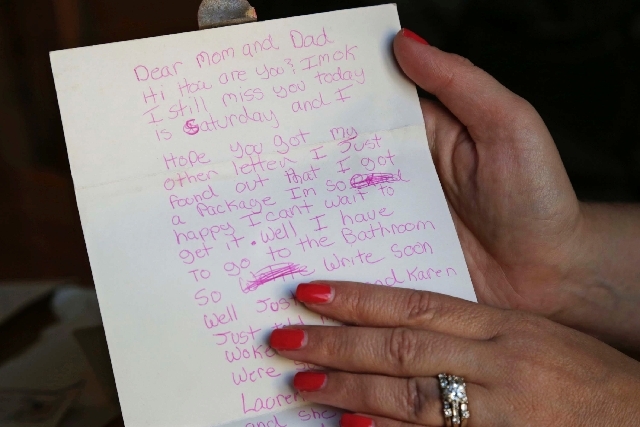 Dear Mom and Dad
Hi How are you? Im ok
I still miss you today
is Saturday and I
Hope you got my
other letter I Just
found out that I got
a Package Im so
happy I cant wait to
get it. Well I have
to go to the Bathroom
So Write Soon
Well Just and Karen
Just
Woke
Were
Lauren
and she